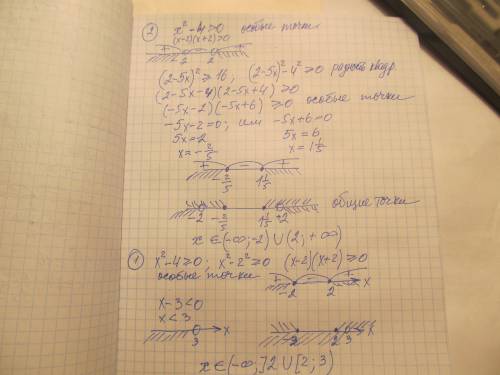 ② x² - 4 > 0 особые точки
(x-2)(x+2) > 0
+ - +
-2 2
(2-5x)² ≥ 16; (2-5x)² - 4² ≥ 0 разность квадр.
(2-5x-4)(2-5x+4) ≥ 0
(-5x-2)(-5x+6) ≥ 0 особые точки
-5x-2=0; или -5x+6=0
5x=-2 5x=6
x=-2/5 x=1 1/5
+ - +
-2/5 1 1/5
-2 -2/5 1 1/5 +2 общие точки
x ∈ (-∞;-2) ∪ (2; +∞)
① x² - 4 ≥ 0; x² - 2² ≥ 0 (x-2)(x+2) ≥ 0
особые точки + - + x
-2 2
x-3<0
x<3
3 x -2 2 3 x
x ∈ (-∞; ]2 ∪ [2; 3)